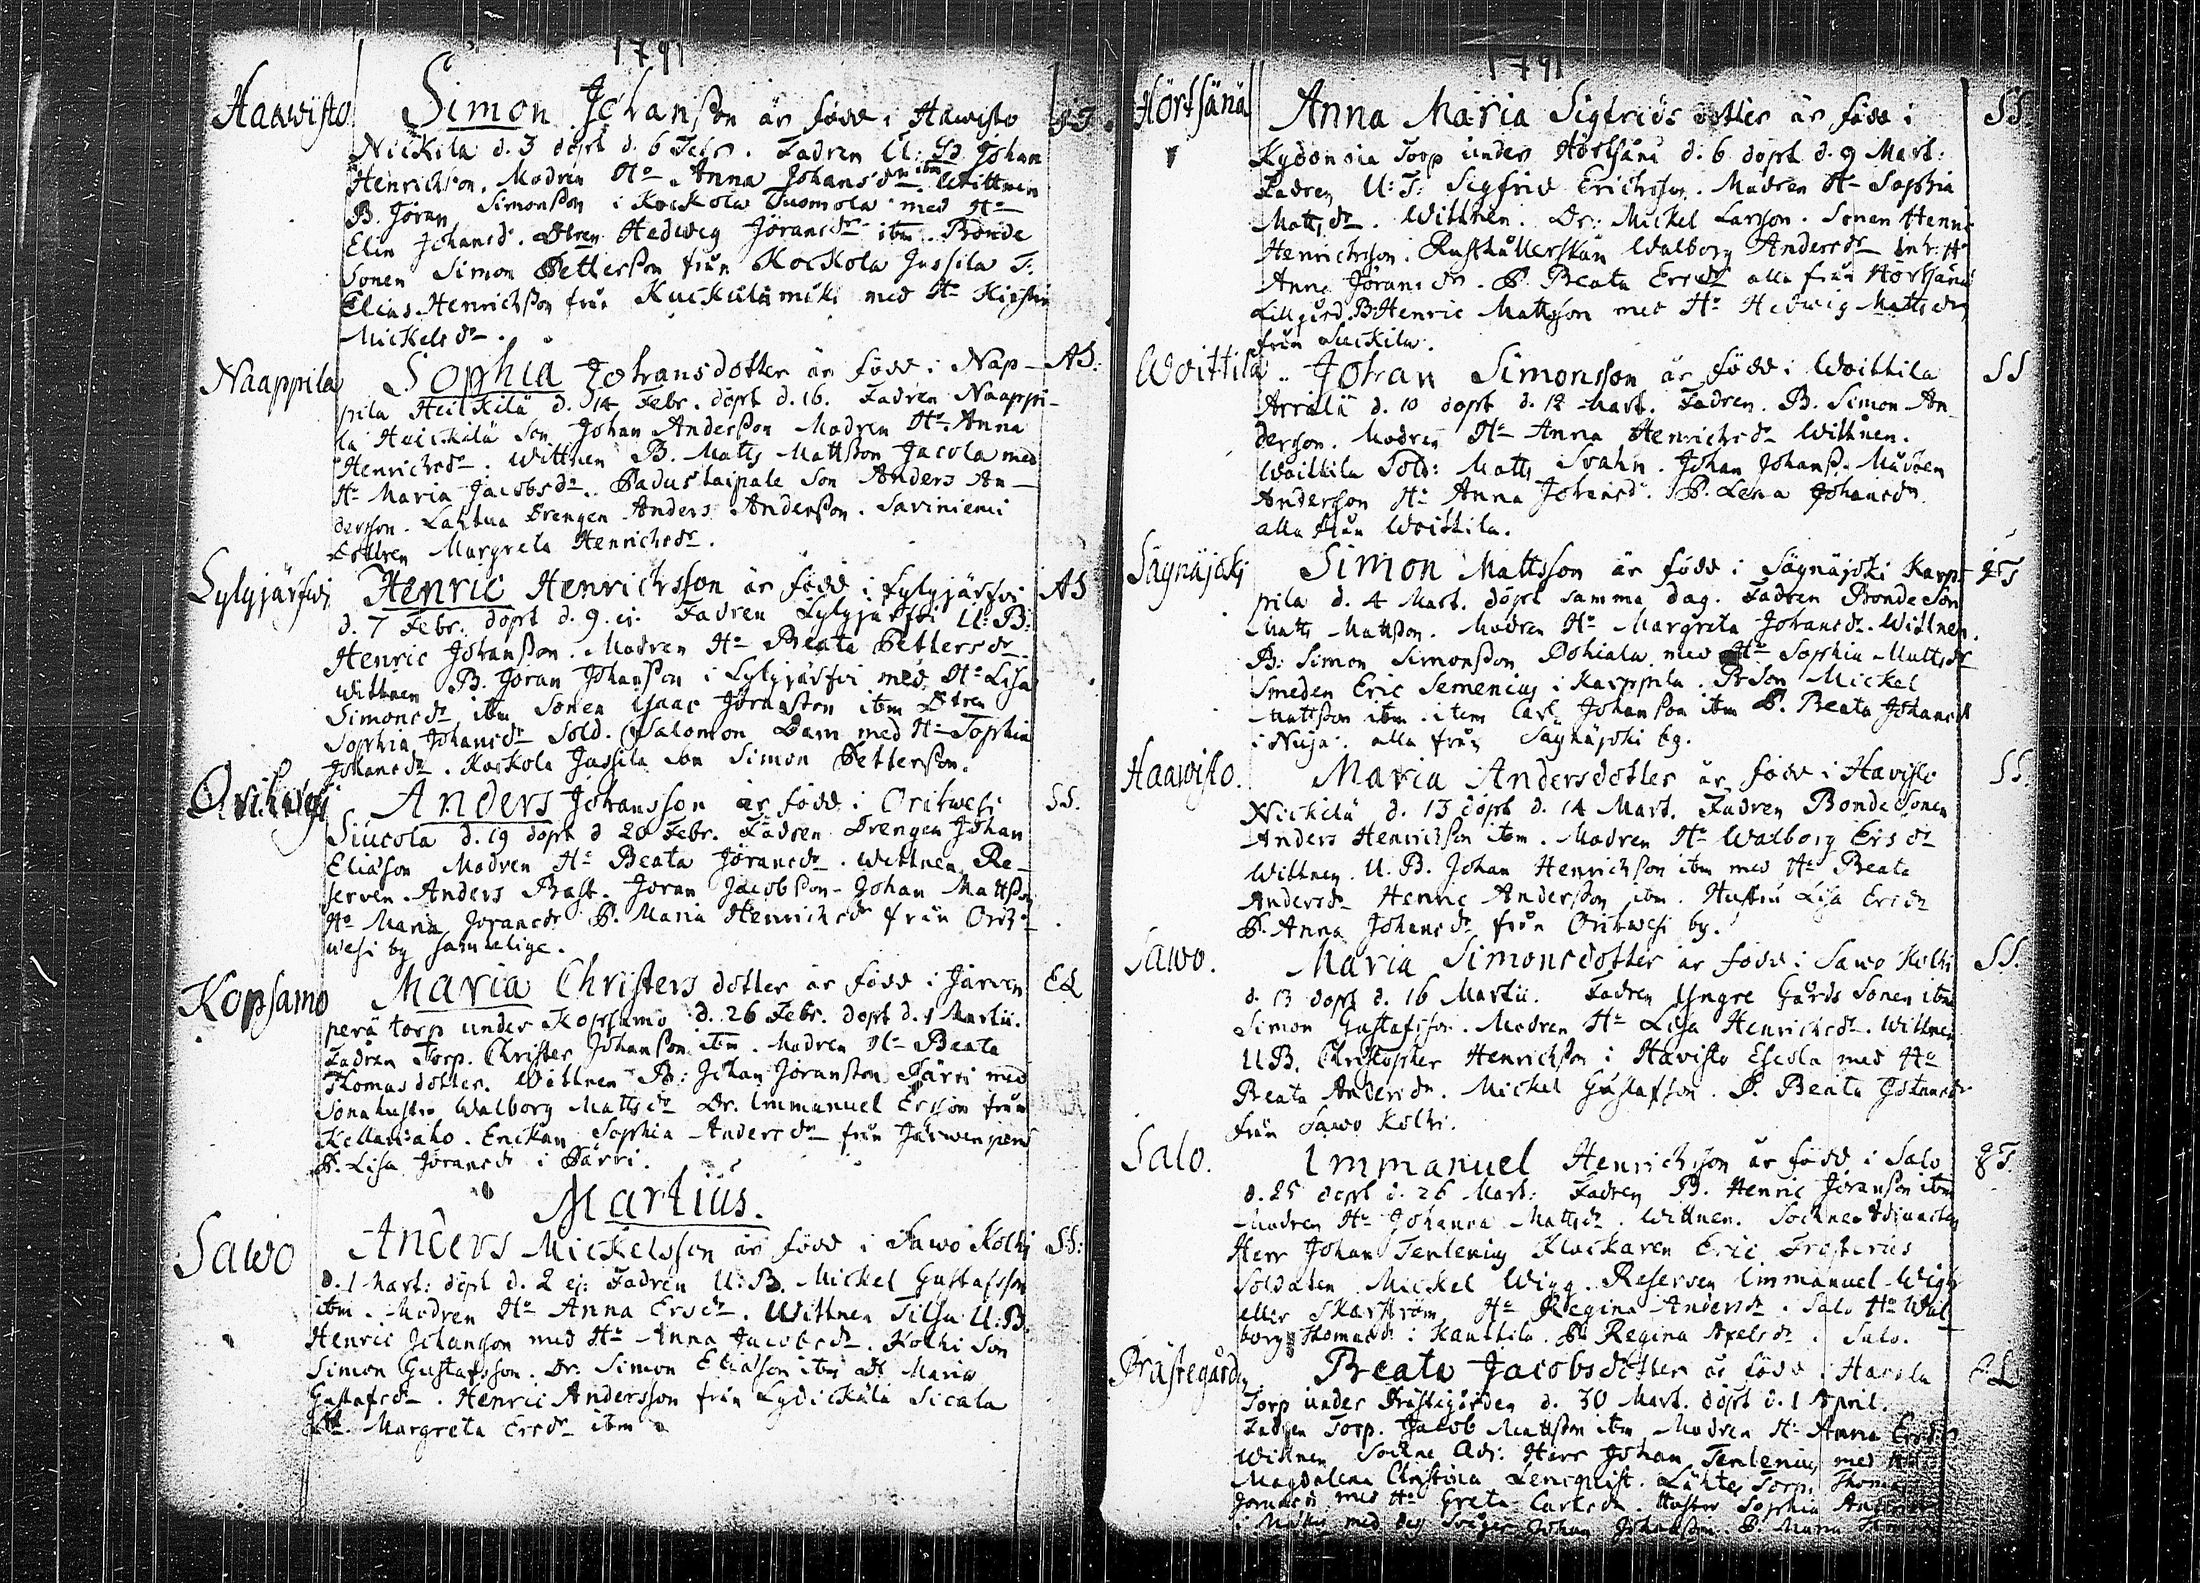 1791
Haawisto Simon Johansson är född i Hawisto
Nickila d. 3 döpt d. 6 Febr. Fadren U: B. Johan
Henrichson. Modren Ho Anna Johansdr ibm Wittnen
B. Jöran Simonsson i Kockola Tuomola med Ho
Elin Johansd. Dtren Hedweg Jöransdr ibm. Bonde
Sonen Simon Pettersson från Kockola Jussila T.
Elias Henrichsson från med Ho Kirstin
Mickelsdr.
Naappila Sophia Johansdotter är född i Nap- AS:
pila Heickilä d. 14 Febr. döpt d. 16. Fadren Naappi-
la Heickilä Son Johan Andersson Modren Ho Anna
Henrichsdr. Wittnen B. Matts Mattsson Jacola med
Ho Maria Jacobsdr. Padustaipale Son Anders An-
dersson. Lahtua Drengen Anders Andersson. Saviniemi
Dottren Margreta Henrichsdr.
Lylyjärfwi Henric Henrichsson är född i Lylyjärfvi AS
d. 7 Febr. döpt d. 9. ej. Fadren Lylyjärfvi U: B:
Henric Johansson. Modren Ho Beata Pettersdr.
Wittnen B. Jöran Johansson i Lylyjärfvi med Ho Lisa
Simonsdr ibm Sonen Isaac Jöransson ibm Dtren
Sophia Johansdr Sold. Salomon Dam med Ho Sophia
Johansdr. Kockola Jussila Son Simon Pettersson.
Orihwesi Anders Johansson är född i Orihwesi SS.
Siucola d. 19 döpt d 20 Febr. Fadren Drengen Johan
Eliasson Modren Ho Beata Jöransdr. Wittnen Re-
serven Anders Brask. Jöran Jacobsson. Johan Mattsson
Ho Maria Jöransdr P. Maria Henrichsdr från Orih-
wesi by samtelige.
Kopsamo Maria Christersdotter är född i Järven EL
perä torp under Kopsamo d. 26 Febr. döpt d. 1 Martii.
Fadren Torp. Christer Johansson ibm. Modren Ho Beata
Thomasdotter. Wittnen B: Johan Jöransson Pärri med
Sonahustru Walborg Mattsdr Dr. Immanuel Ersson från
Kellariaho. Enckan Sophia Andersdr från Järwenperä
P. Lisa Jöransdr i Pärri.
Martius.
Sawo Anders Mickelsson är född i Sawo Kolhi SS:
d. 1 Mart: döpt d. 2 ej: Fadren U: B. Mickel Gustafsson
ibm. Modren Ho Anna Ersdr. Wittnen Tilsa U: B.
Henric Johansson med Ho Anna Jacobsdr. Kolhi Son
Simon Gustafsson. Dr. Simon Eliasson ibm Dr Maria
Gustafsdr. Henric Andersson från Sicala
Margreta Ersdr ibm
1791
Hörtsänä Anna Maria Sigfridsdotter är född i SS
Kydönoia Torp under Hörtsänä d. 6 döpt d. 9 Mart:
Fadren U: T: Sigfrid Erichsson. Modren Ho Sophia
Mattsdr. Wittnen. Dr: Mickel Larsson. Sonen Henric
Henrichsson. Rusthållerskan Walborg Andersdr Inh: Ho
Anna Jöransdr. P. Beata Ersdr alla från Hörtsänä
Lillgård. B Henric Mattsson med Ho Hedwig Mattsdr
från
Woittila Johan Simonsson är född i Woittila SS
Arrälä d. 10 döpt d. 12 Mart. Fadren. B. Simon An-
dersson. Modren Ho Anna Henrichsdr Wittnen.
Woittila Sold: Matts Svahn. Johan Johanss. Måsen
Andersson Ho Anna Johansdr. P. Lena Johansdr
alla från Woittila.
Säynäjoki Simon Mattsson är född i Säynäjoki Karp-
pila d. 4 Mart. döpt samma dag. Fadren Bonde Son
Matts Mattsson. Modren Ho Margreta Johansdr. Wittnen.
B: Simon Simonsson Pohiala med Ho Sophia Mattsdr
Smeden Eric Semenius i Karppila. Son Mickel
Mattsson ibm. item Carl Johansson ibm P. Beata Johansdr
i Nuija. alla från Säynäjoki by.
Haawisto. Maria Andersdotter är född i Havisto SS.
Nickilä d. 13 döpt d. 14 Mart. Fadren Bonde Sonen
Anders Henrichson ibm. Modren Ho Walborg Ersdr
Wittnen. U. B. Johan Henrichson ibm med Ho Beata
Andersdr Henric Andersson ibm. Hustru Lisa Ersdr
P. Anna Johansdr från Orihwesi by.
Sawo. Maria Simonsdotter är född i Sawo Kolhi SS.
d. 13 döpt d. 16 Martii. Fadren Yngre Gårds Sonen ibm
Simon Gustafsson. Modren Ho Lisa Henrichsdr. Wittnen
U. B. Christopher Henrichson i Havisto Escola med Ho
Beata Andersdr. Mickel Gustafsson. P. Beata Johansdr
från Sawo Kolhi.
Salo. Immanuel Henrichsson är född i Salo
d. 25 döpt d. 26 Mart: Fadren B. Henric Jöransson ibm
Modren Ho Johanna Mattsdr. Wittnen. Sockne Adjuncten
Herr Johan Tenlenius Klockaren Eric Frosterus
Soldaten Mickel Wigg. Reserven Immanuel Wigg
eller Skarström Ho Regina Andersdr. Salo Ho Wal-
borg Thomasdr i Kauttila. P. Regina Axelsdr i Salo.
Prästegården Beata Jacobsdotter är född i Harola EL
Torp under Prästegården d. 30 Mart. döpt d. 1 April.
Fadren Torp. Jacob Mattsson ibm Modren Ho Anna Ersdr
Wittnen Sockne Adj: Herr Johan Tenlenius med
Magdalena Christina Lencqvist. Torp. Thomas
med Ho Greta Carlsdr. Hustru Sophia
med Johan Johansson. P. Maria